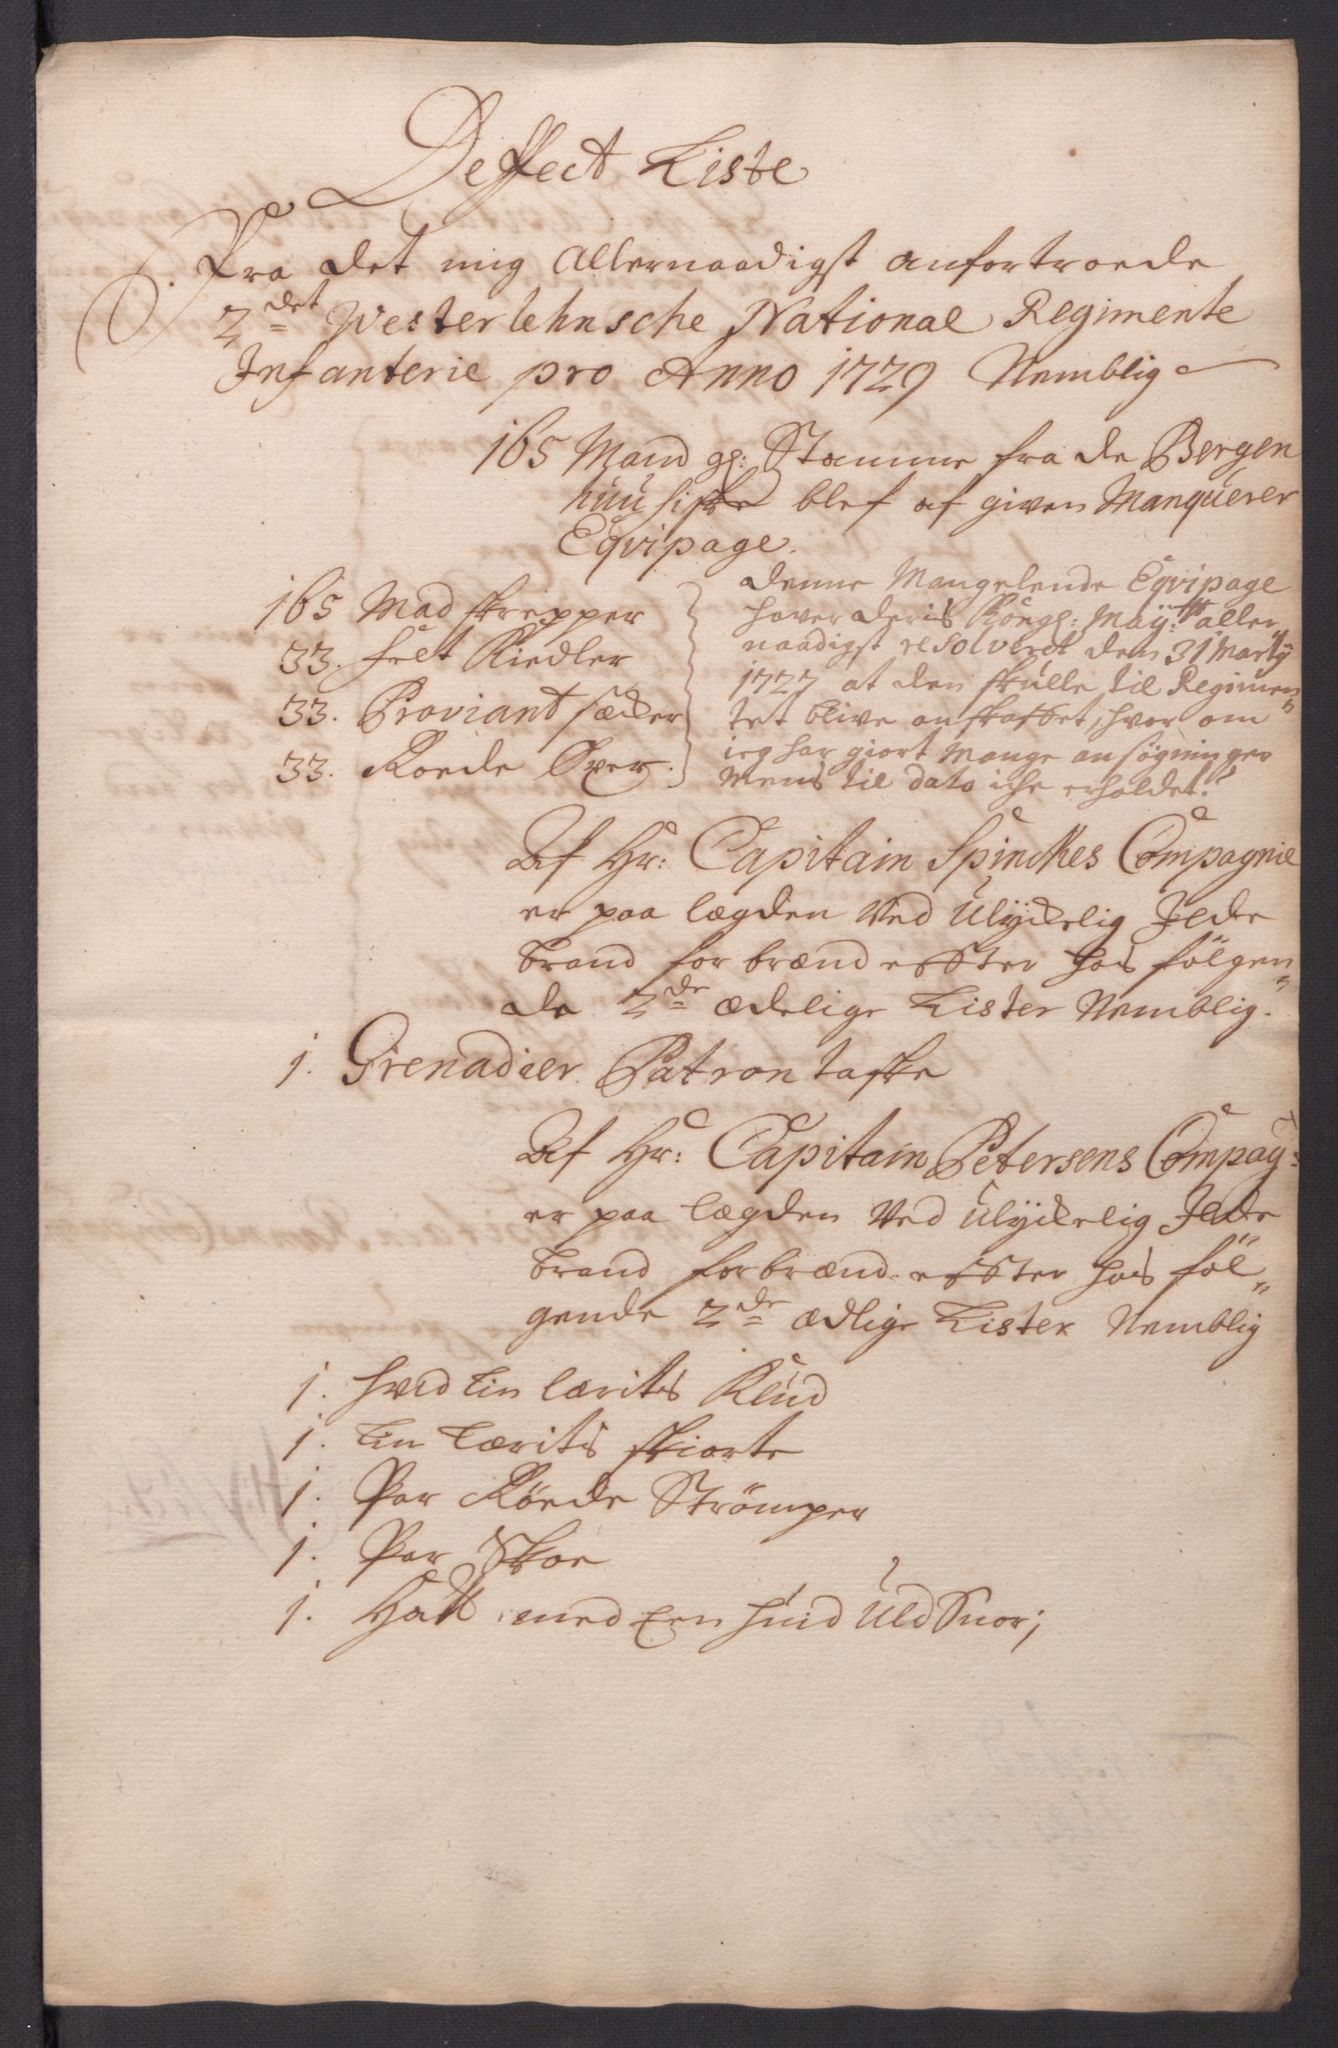 Deffect Liste
Fra det mig Allernaadigst anfortroede
2det Westerlehnsche National Regimente
Infanterie pro Anno 1729 Nemblig
165 Mand gl: Stamme fra de Bergen
huusiske blef af given Manquerer
Eqvipage.
165 Mad skrepper
33. felt Kiedler
33. Proviant sæcker
33. Roede Øxer.
denne Mangelende Eqvipage
haver deris Köngl: May:tt aller
naadigst resolveret den 31 Marty
1727 at den skulle til Regimen
tet blive anskaffet, hvor om
ieg har giort Mange ansøgninger
Mens til dato iche erholdet.
Af Hr: Capitain Spinckes Compagnie
er paa lægden Ved Ulyckelig Ilde
brand for brænd effter hos fölgen
de 2de ædelige Lister Nemblig.
1. Grenadier Patron taske
Af Hr: Capitain Petersens Compag:
er paa lægden Ved Ulyckelig Ilde
brand forbrænd effter hos föl
gende 2de ædlige Lister Nemblig
1. hvid Lin lærits Klud
1. Lin Lærits skiorte
1. Par Röede Strömper
1. Par Skoe
1. Hatt med Een hvid Uld Snor;